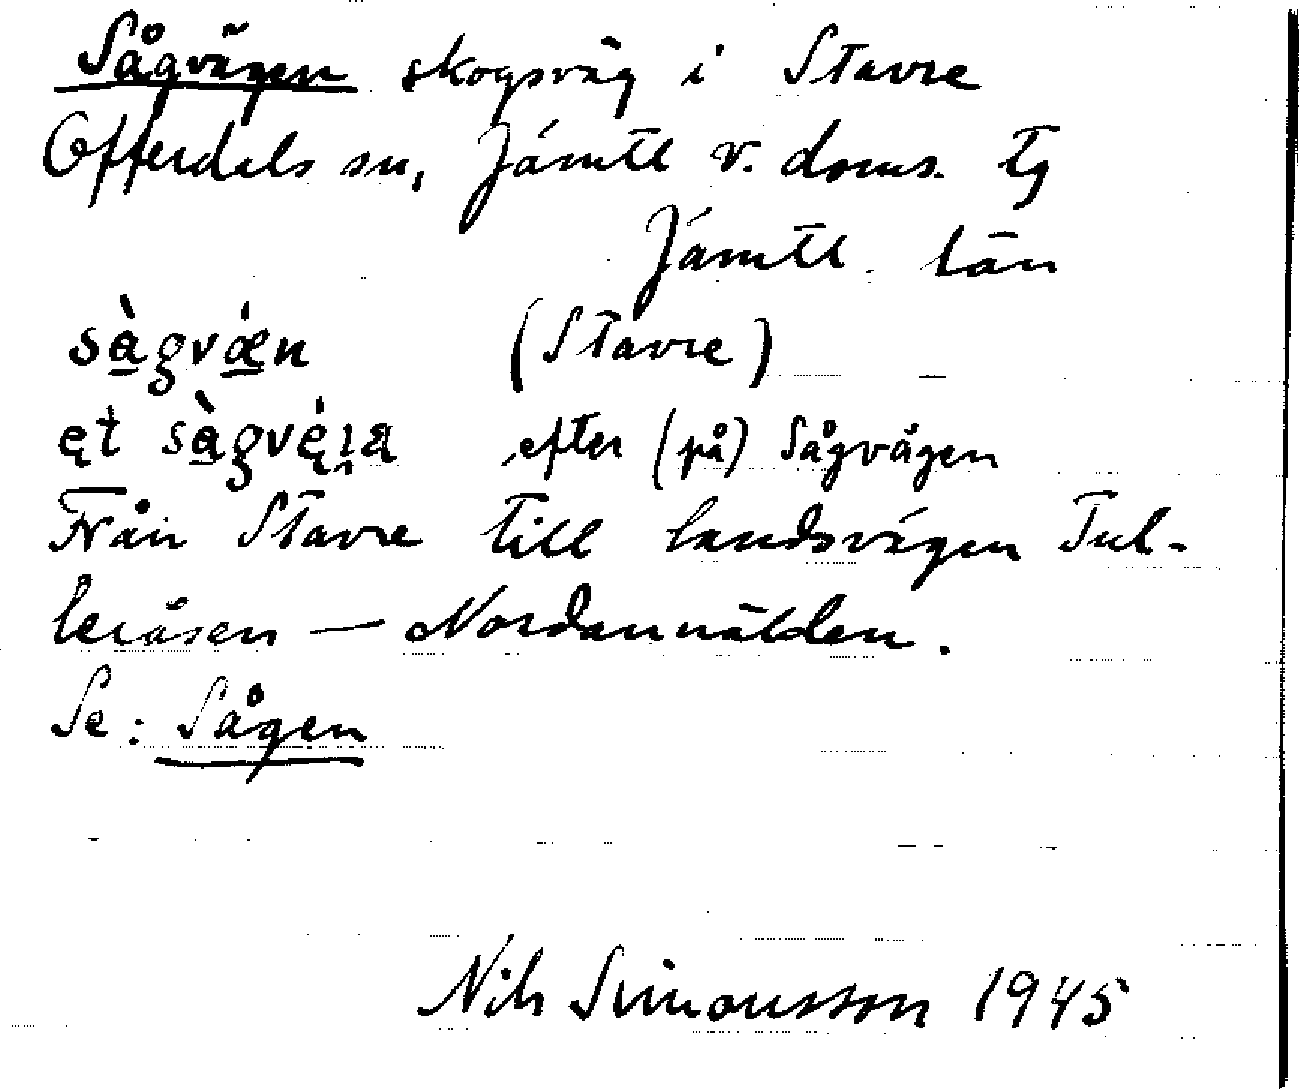 Sågvägen skogsväg i Stavre
Offerdals sn, Jämtl v. doms. tg
Jämtl. län
sàgvǽn (Stavre)
ęt sàgvę́ɪa efter (på) Sågvägen
Från Stavre till landsvägen Tul-
leråsen — Nordannälden.
Se: Sågen
Nils Simonsson 1945